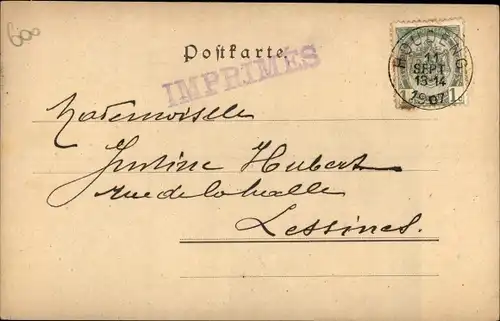 600
Postkarte
IMPRIMÉS
HOUDENG
11
SEPT
13-14
1907
1
Mademoiselle
Justine Hubert
rue de la halle
Lessines.